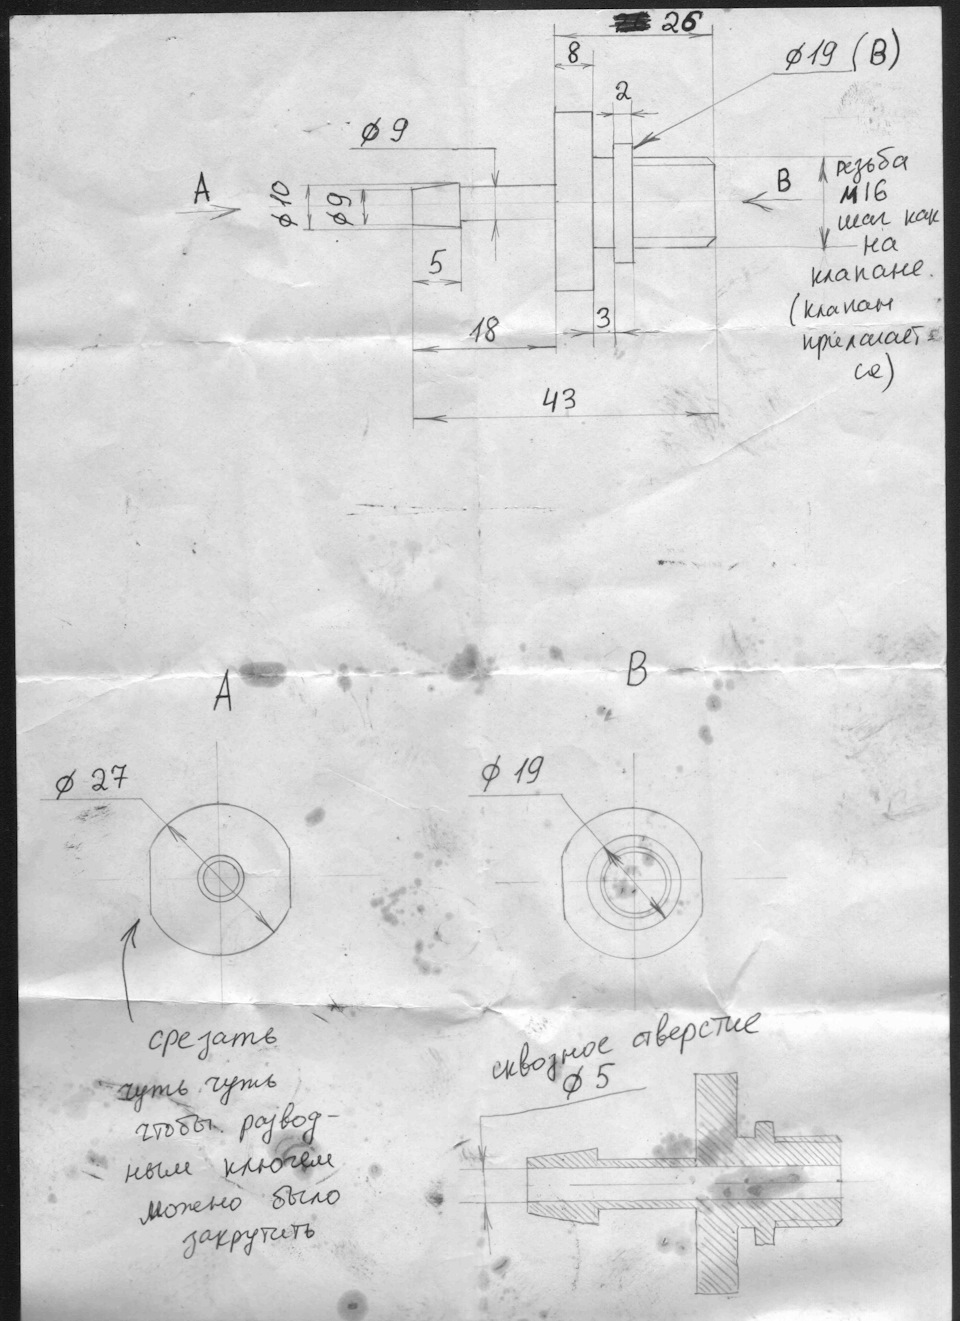 26
8
ϕ19 (В)
2
ϕ9
А
ϕ10
ϕ9
В
резьба
М16
шаг как
на
клапане.
(клапан
прилагает
ся)
5
3
18
43
А
В
ϕ 27
ϕ 19
срезать
чуть чуть
чтобы развод-
ным ключем
можно было
закрутить
сквозное отверстие
ϕ 5